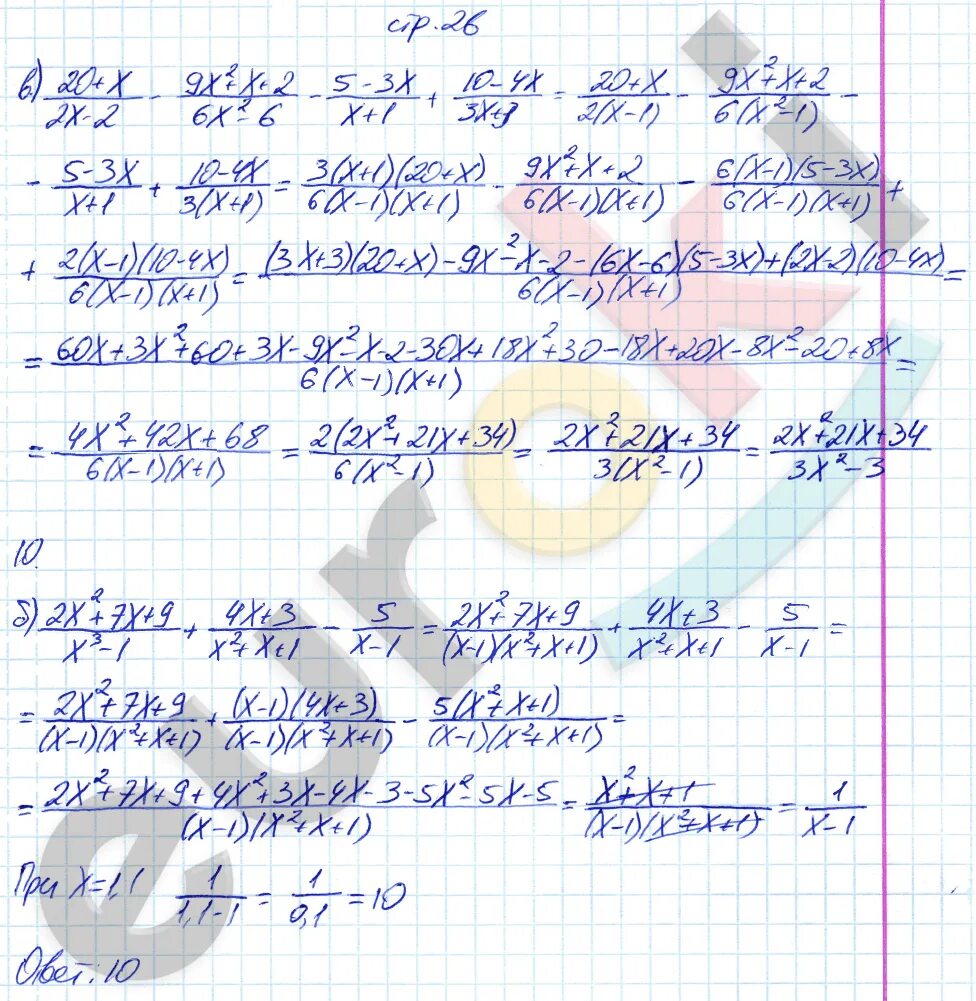 стр. 26
в) (20+x)/(2x-2) - (9x²+x+2)/(6x²-6) - (5-3x)/(x+1) + (10-4x)/(3x+3) = (20+x)/(2(x-1)) - (9x²+x+2)/(6(x²-1)) -
- (5-3x)/(x+1) + (10-4x)/(3(x+1)) = (3(x+1)(20+x))/(6(x-1)(x+1)) - (9x²+x+2)/(6(x-1)(x+1)) - (6(x-1)(5-3x))/(6(x-1)(x+1)) +
+ (2(x-1)(10-4x))/(6(x-1)(x+1)) = ((3x+3)(20+x)-9x²-x-2-(6x-6)(5-3x)+(2x-2)(10-4x))/(6(x-1)(x+1)) =
= (60x+3x²+60+3x-9x²-x-2-30x+18x²+30-18x+20x-8x²-20+8x)/(6(x-1)(x+1)) =
= (4x²+42x+68)/(6(x-1)(x+1)) = (2(2x²+21x+34))/(6(x²-1)) = (2x²+21x+34)/(3(x²-1)) = (2x²+21x+34)/(3x²-3)
10.
б) (2x²+7x+9)/(x³-1) + (4x+3)/(x²+x+1) - 5/(x-1) = (2x²+7x+9)/((x-1)(x²+x+1)) + (4x+3)/(x²+x+1) - 5/(x-1) =
= (2x²+7x+9)/((x-1)(x²+x+1)) + ((x-1)(4x+3))/((x-1)(x²+x+1)) - (5(x²+x+1))/((x-1)(x²+x+1)) =
= (2x²+7x+9+4x²+3x-4x-3-5x²-5x-5)/((x-1)(x²+x+1)) = (x²+x+1)/((x-1)(x²+x+1)) = 1/(x-1)
При x=1,1 1/(1,1-1) = 1/(0,1) = 10
Ответ: 10
euroki